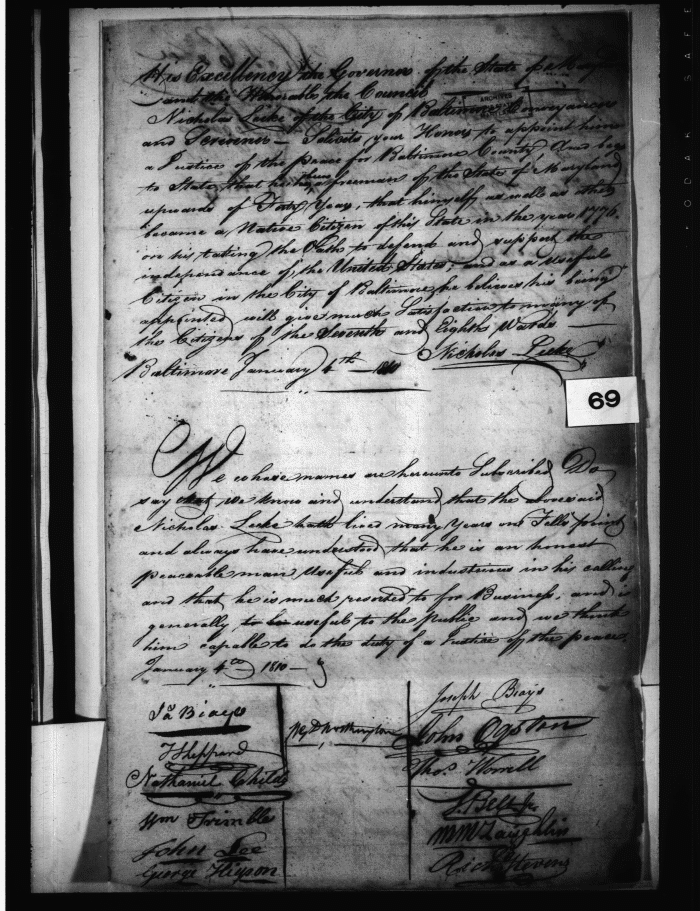 His Excellency the Governor of the State of
and the Honorable the Council
Nicholas Leeke of the City of Baltimore Conveyancer
and Scrivener — Solicits your Honors to appoint him
a Justice of the peace for Baltimore County And begs
to State that he has been a freeman of the State of Maryland
upwards of Forty Years, that himself as well as others
became a Native Citizen of this State in the year 1776.
on his taking the Oath to defend and support the
independance of the United States, and as a Useful
Citizen in the City of Baltimore, he believes his being
appointed will give much Satisfaction to many of
the Citizens of the Seventh and Eighth Wards —
Nicholas Leeke
Baltimore January 4th — 1810
69
We whose names are hereunto Subscribed Do
say that we know and understand that the abovesaid
Nicholas Leeke hath lived many Years on Fells point
and always have understood that he is an honest
peaceable man Useful and industerous in his calling
and that he is much resorted to for Business, and is
generally to be useful to the public and we think
him capable to do the duty of a Justice of the peace
January 4th 1810 —
Joseph Biays
Jas Biays
John Ogston
Sheppard
Worthington
Thos. Worrell
Nathaniel Childs
Wm Trimble
McLaughlin
John Lee
Richd Stevens
George Heyson
KODAK SAFE